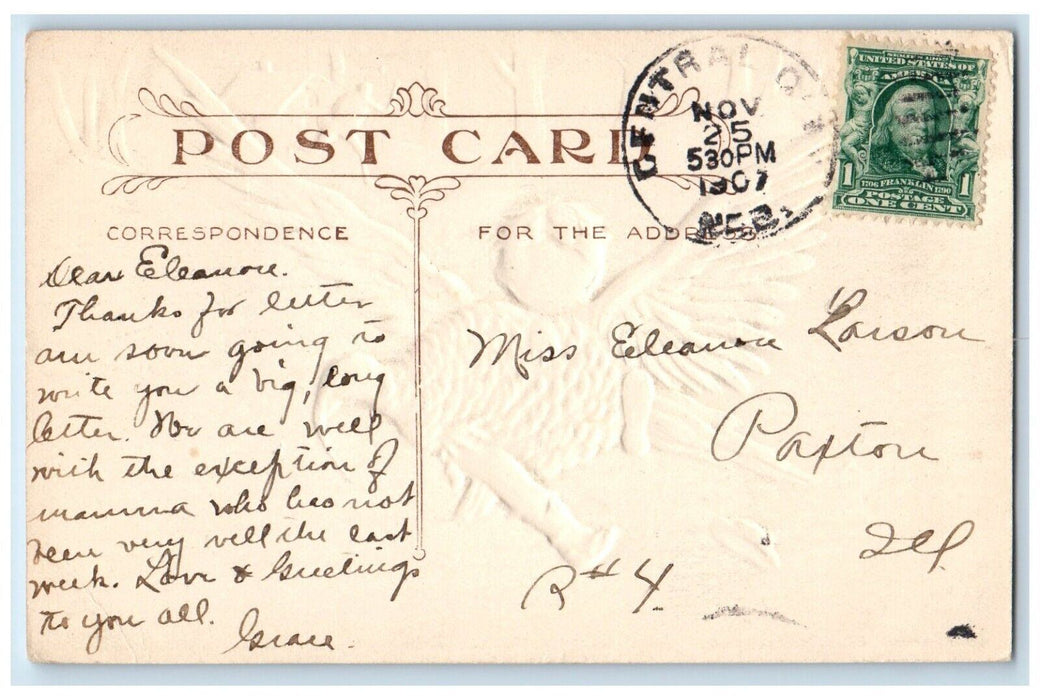 POST CARD
CENTRAL
NOV
25
530PM
1907
NEB.
SERIES 1902
UNITED STATES OF
AMERICA
1 1706 FRANKLIN 1790 1
POSTAGE
ONE CENT
CORRESPONDENCE
FOR THE ADDRESS
Dear Eleanore.
Thanks for letter
am soon going to
write you a big, long
letter. We are well
with the exception of
mamma who has not
been very well the last
week. Love & Greetings
to you all.
Grace.
Miss Eleanore Larson
Paxton
Ill
R#4